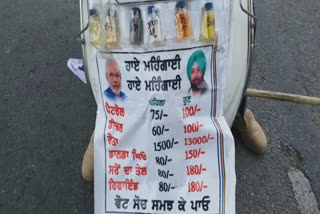 ਹਾਏ ਮਹਿੰਗਾਈ
ਹਾਏ ਮਹਿੰਗਾਈ
ਪੈਟਰੋਲ ਪਹਿਲਾ 75/- ਹੁਣ 100/-
ਡੀਜ਼ਲ 60/- 100/-
ਰੇਤਾ 1500/- 13000/-
ਡਾਲਡਾ ਘਿਓ 80/- 150/-
ਸਰੋਂ ਦਾ ਤੇਲ 80/- 180/-
ਰਿਫਾਇੰਡ 80/- 180/-
ਵੋਟ ਸੋਚ ਸਮਝ ਕੇ ਪਾਓ